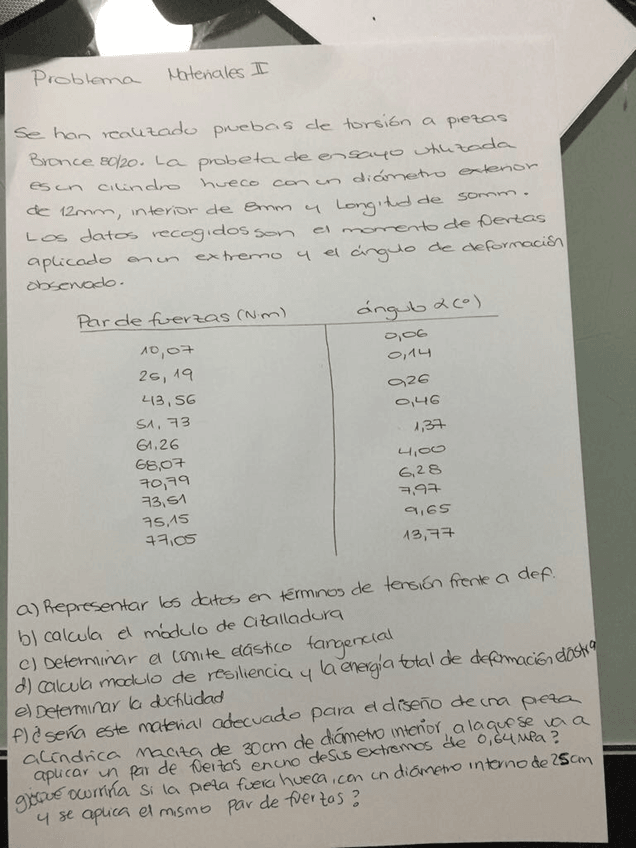 Problema Materiales II
Se han realizado pruebas de torsión a piezas
Bronce 80/20. La probeta de ensayo utilizada
es un cilindro hueco con un diámetro exterior
de 12mm, interior de 8mm y Longitud de 50mm.
Los datos recogidos son el momento de fuertas
aplicado en un extremo y el ángulo de deformación
observado.
Par de fuerzas (N·m) ángulo α(°)
10,07 0,06
26,19 0,14
43,56 0,26
51,73 0,46
61.26 1,37
68,07 4,00
70,79 6,28
73,51 7,97
75,15 9,65
77,05 13,77
a) Representar los datos en términos de tensión frente a def.
b) calcula el módulo de cizalladura
c) Determinar el límite elástico tangencial
d) calcula modulo de resiliencia y la energía total de deformación elástica
e) Determinar la ductilidad
f) ¿sería este material adecuado para el diseño de una pieza
cilíndrica maciza de 30cm de diámetro interior, a la que se va a
aplicar un par de fuerzas en uno de sus extremos de 0,64 MPa?
g) ¿Qué ocurriría si la pieza fuera hueca, con un diámetro interno de 25cm
y se aplica el mismo par de fuerzas?